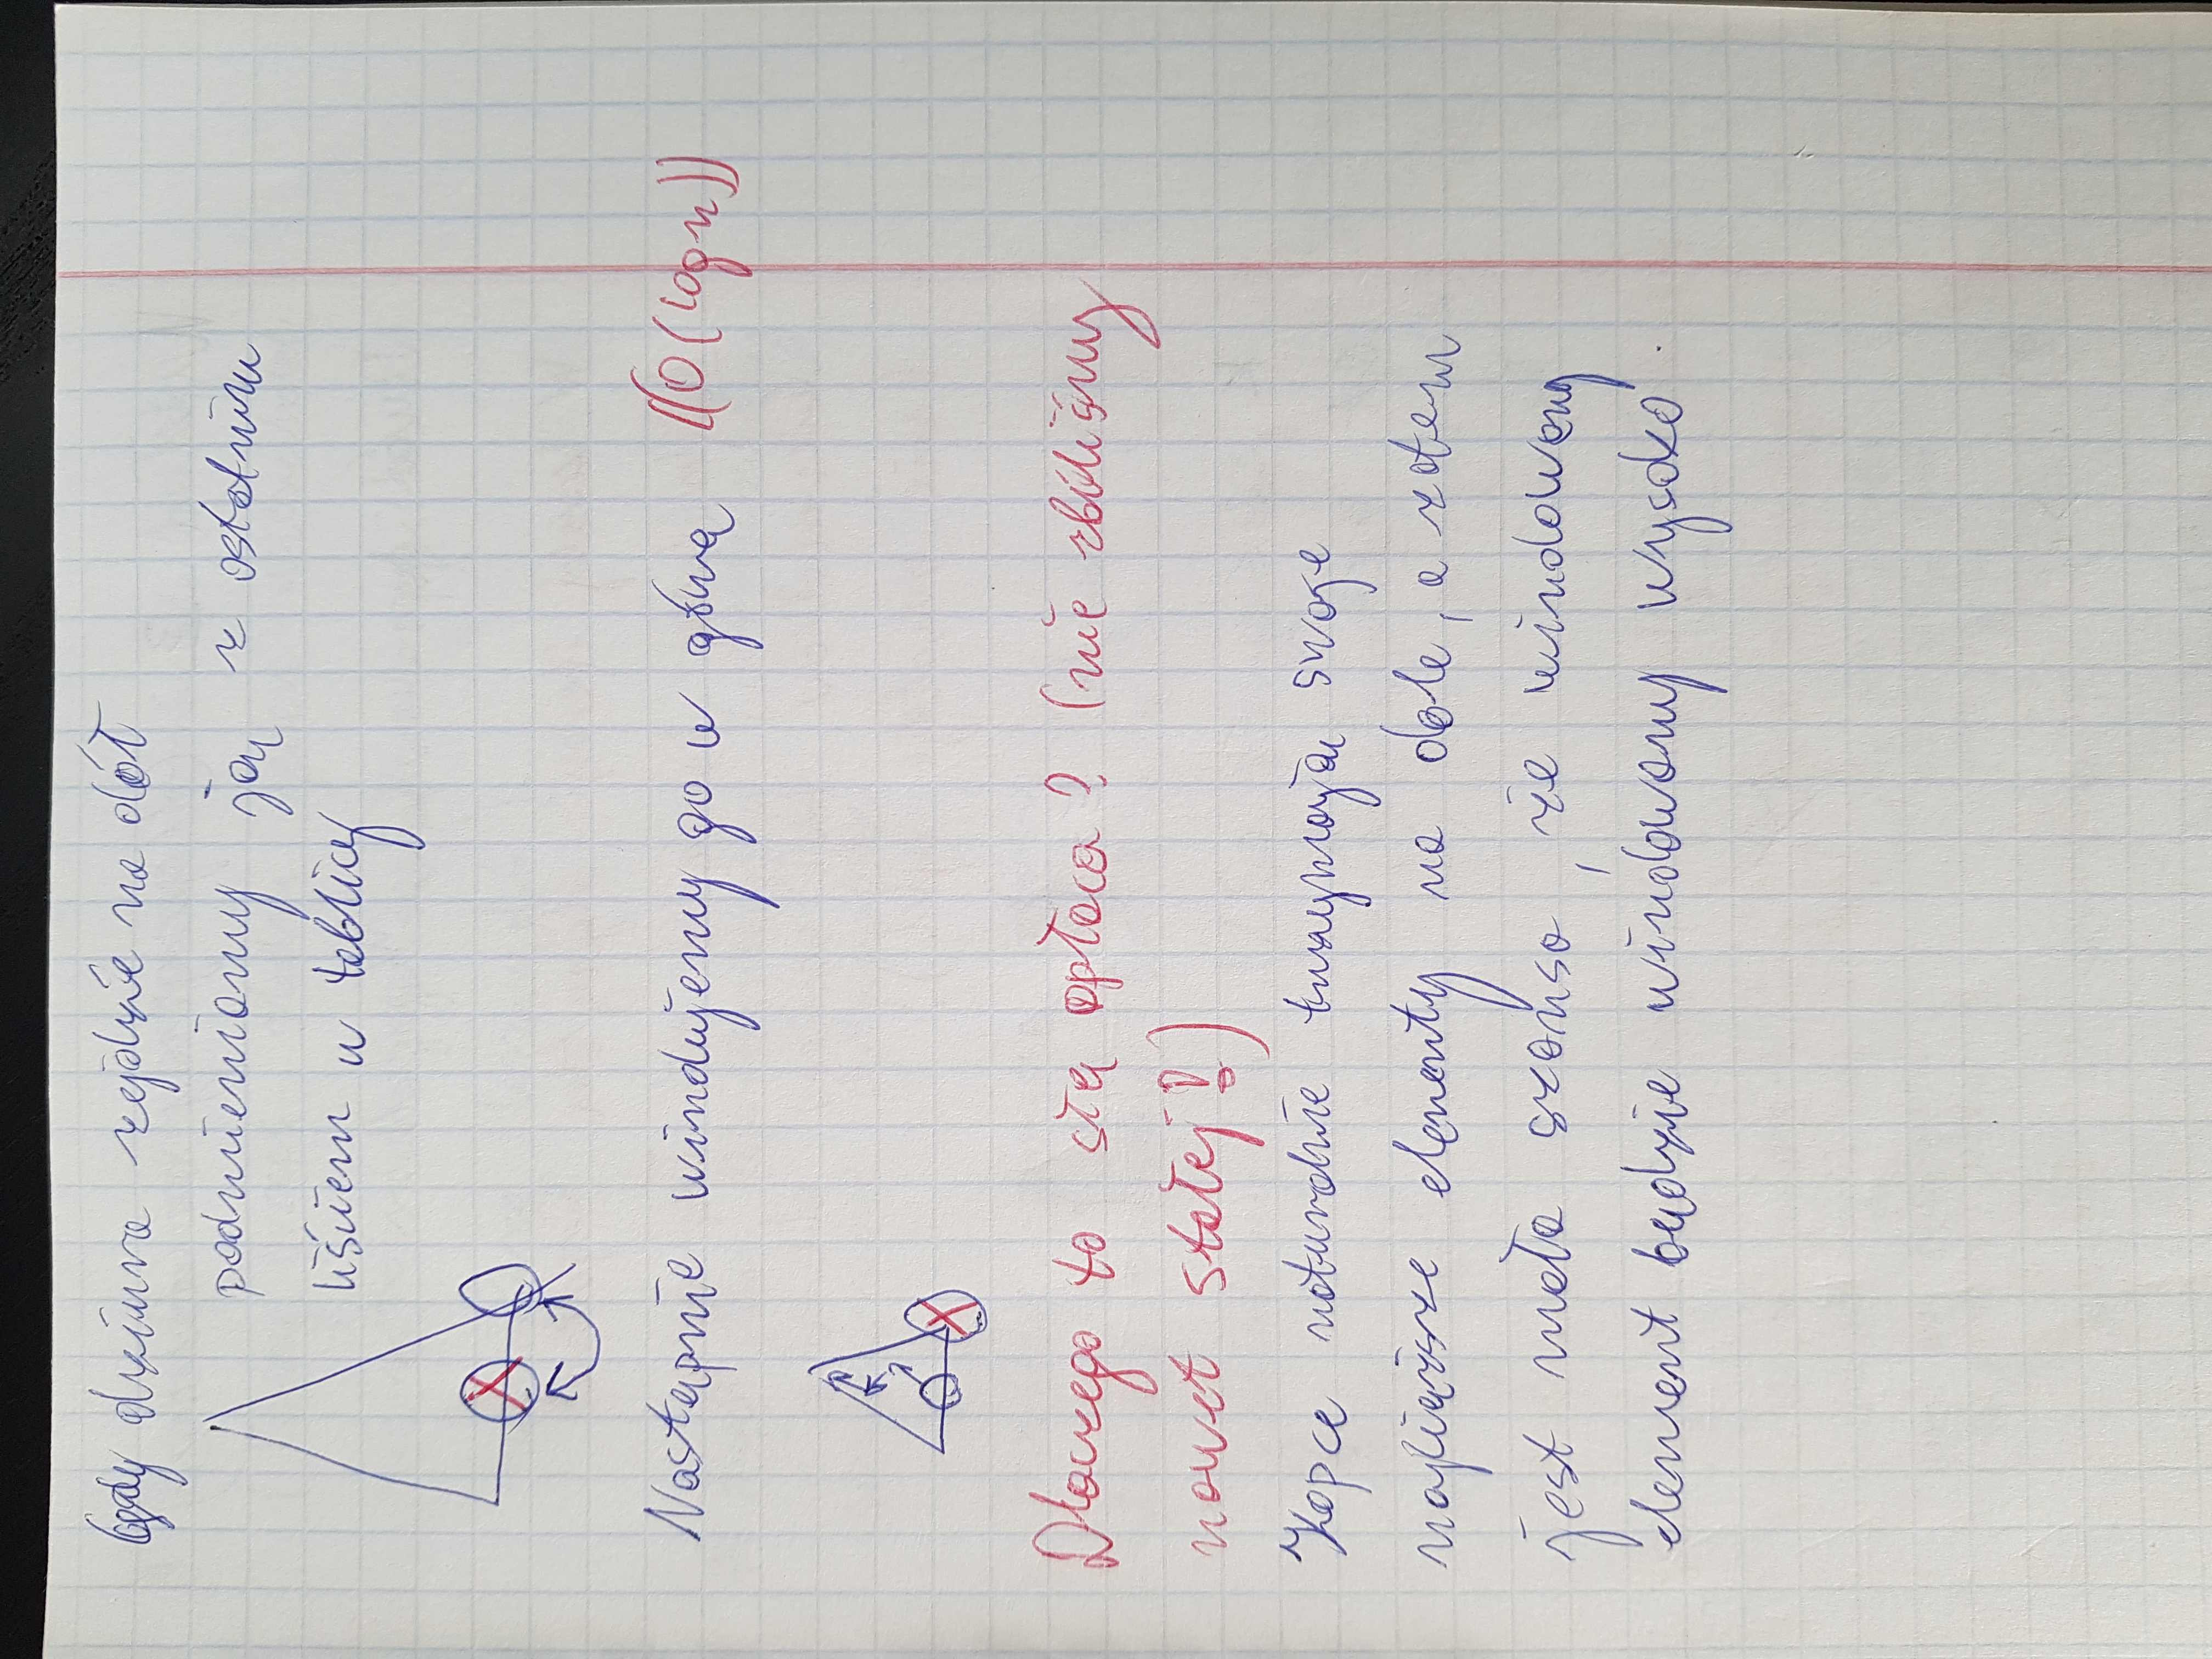 Gdy dziura zejdzie na dół
podmieniamy ją z ostatnim
liściem w tablicy
Następnie windujemy go w górę ((O(log n))
Dlaczego to się opłaca? (nie zbiliśmy
nawet stałej!)
Kopce naturalnie trzymają swoje
najcięższe elementy na dole, a zatem
jest mała szansa, że windowany
element będzie windowany wysoko.